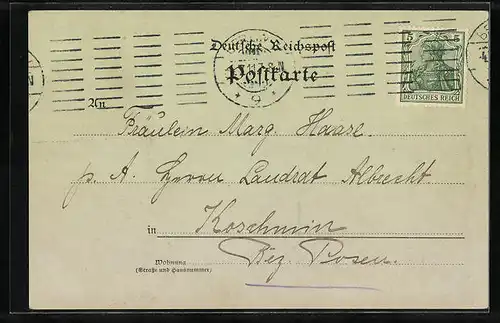 Deutsche Reichspost
Postkarte
5 5
DEUTSCHES REICH
9
An
Fräulein Marg. Haase
p. A. Herrn Landrat Albrecht
in Koschmin
Bez. Posen.
Wohnung
(Straße und Hausnummer)